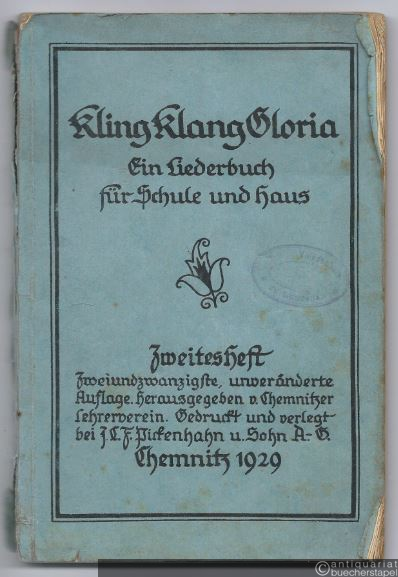 Kling Klang Gloria
Ein Liederbuch
für Schule und Haus
Zweites Heft
Zweiundzwanzigste, unveränderte
Auflage. Herausgegeben v. Chemnitzer
Lehrerverein. Gedruckt und verlegt
bei J.C.F. Pickenhahn u. Sohn A.-G.
Chemnitz 1929
©antiquariat
buecherstapel